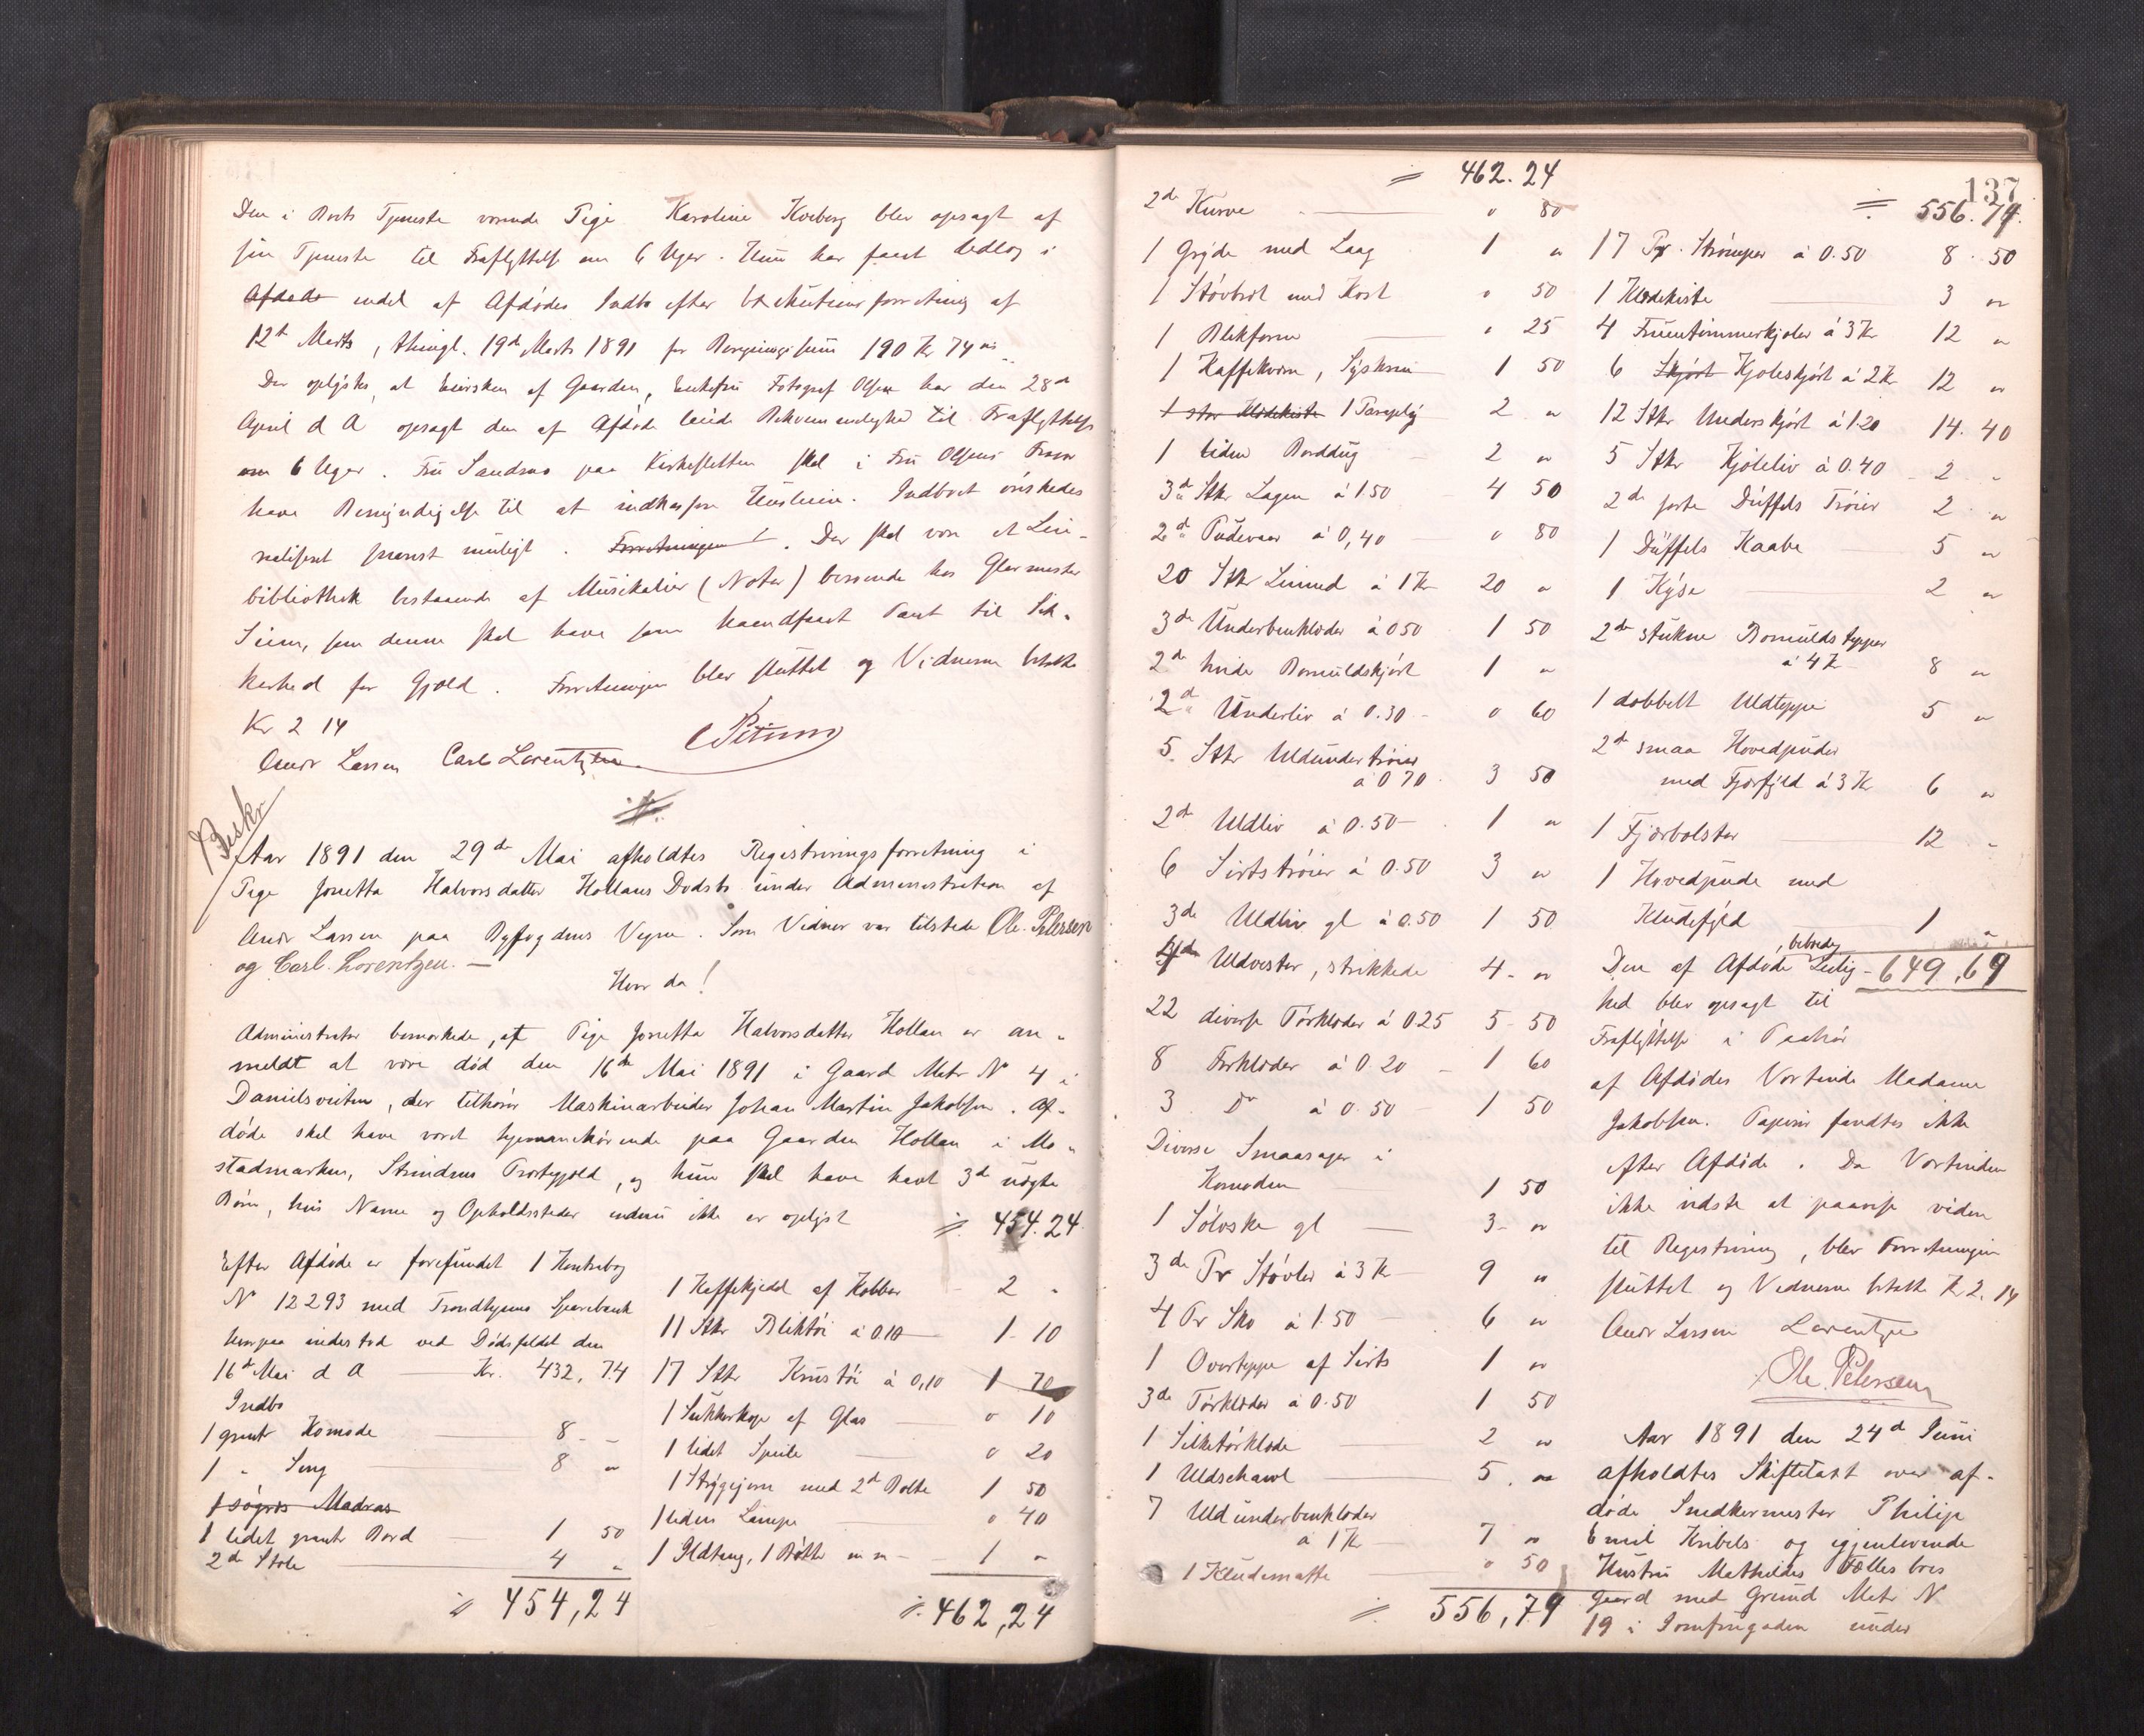 Den i Boets Tjeneste værende Pige Karoline Kveberg blev opsagt af
sin Tjeneste til Fraflyttelse om 6 Uger. Hun har faaet Udlæg i
Afdøde endel af Afdødes Indbo efter Exekutionsforretning af
12te Marts, thingl. 19de Marts 1891 for Beregningssum 190 Kr 74 øre
Der oplystes, at Eiersken af Gaarden, Enkefru Fotograf Olsen har den 28de
April d A opsagt den af Afdøde leiede Bekvemmelighed til Fraflyttelse
om 6 Uger. Fru Sandmo paa Kirkesletten skal i Fru Olsens Fravær
have Bemyndigelse til at indkassere Huusleien. Indboet ønskedes
realiseret snarest muligt. Forretningen. Der skal være et Leie-
bibliothek bestaaende af Musikalier (Noter) beroende hos Glarmester
Siem, som denne skal have som haandfaaet Pant til Sik-
kerhed for Gjæld. Forretningen blev sluttet og Vidnerne betalte
Kr 2 14
Andr Larsen Carl Lorentzen.
Beskr
Aar 1891 den 29de Mai afholdtes Registreringsforretning i
Pige Jonetta Halvorsdatter Hollans Dødsbo under Administration af
Andr Larsen paa Byfogdens Vegne. Som Vidner var tilstede Ole Petersen
og Carl Lorentzen. —
Hvor da!
Administrator bemærkede, at Pige Jonetta Halvorsdatter Hollan er an-
meldt at være død den 16de Mai 1891 i Gaard Matr No 4 i
Danielsveiten, der tilhører Maskinarbeider Johan Martin Jakobsen. Af-
døde skal have været hjemmehørende paa Gaarden Hollan i Mo-
stadmarken, Strindens Præstegjeld, og hun skal have havt 3de uægte
Børn, hvis Navne og Opholdssteder endnu ikke er oplyst
Efter Afdøde er forefundet 1 Kontrabog
No 12293 med Trondhjems Sparebank
hvorpaa indestod ved Dødsfaldet den
16de Mai d A — Kr. 432,74
Indbo
1 grønt Komode 8 -
1 " Seng 8 "
1 søgræs Madras
1 lidet grønt Bord 1 50
2de Stole 4 "
454,24
454.24
1 Kaffekjedel af Kobber 2 "
11 Stkr Bliktøi à 0.10 1 10
17 Stkr Krustøi à 0,10 1 70
1 Sukkerkop af Glas " 10
1 lidet Speile " 20
1 Strygejern med 2de Bolte 1 50
1 liden Lampe " 40
1 Ildtang, 1 Bøtte m m 1 "
462,24
462.24
2de Kurve " 80
1 Gryde med Laag 1 "
1 Støvbret med Kost " 50
1 Blikform " 25
1 Kaffekværn, Syskrin 1 50
1 stor Klædekiste 1 Paraply 2 "
1 liden Borddug 2 "
3de Stkr Lagen à 1.50 4 50
2de Pudevaar à 0,40 " 80
20 Stkr Linned à 1 Kr 20 "
3de Underbenklæder à 0.50 1 50
2de hvide Bomuldskjørt 1 "
2de Underliv à 0.30 " 60
5. Stkr Uldundertrøier
à 0 70 3 50
2de Uldliv à 0.50 1 "
6 Sirtstrøier à 0.50 3 "
3de Uldliv gl à 0.50 1 50
4de Uldvester, strikkede 4 "
22 diverse Tørklæder à 0.25 5 50
8 Forklæder à 0.20 1 60
3 Do à 0.50 1 50
Diverse Smaasager i
Komoden 1 50
1 Sølvske gl 3 "
3de Pr Støvler à 3 Kr 9 "
4 Pr Sko à 1.50 6 "
1 Overteppe af Sirts 1 "
3de Tørklæder à 0.50 1 50
1 Silketørklæde 2 "
1 Uldschawl 5 "
7 Uldunderbenklæder
à 1 Kr 7 "
1 Kludematte " 50
556,79
137
556.79
17 Pr. Strømper à 0.50 8 50
1 Klædekiste 3 "
4 Fruentimmerkjoler à 3 Kr 12 "
6 Skjørt Kjoleskjørt à 2 Kr 12 "
12 Stkr Underskjørt à 1.20 14.40
5 Stkr Kjoleliv à 0.40 2 "
2de sorte Düffels Trøier 2 "
1 Düffels Kaabe 5 "
1 Kyse 2 "
2de stukne Bomuldstepper
à 4 Kr 8 "
1 dobbelt Uldteppe 5 "
2de smaa Hovedpuder
med Fjærfyld à 3 Kr 6 "
1 Fjærbolster 12 "
1 Hovedpude med
Kludefyld 1 "
649,69
Den af Afdøde beboede Leilig-
hed blev opsagt til
Fraflyttelse i Paahør
af Afdødes Værtinde Madame
Jakobsen. Papirer fandtes ikke
efter Afdøde. Da Værtinden
ikke vidste at paavise videre
til Registrering, blev Forretningen
sluttet og Vidnerne betalte Kr 2.14
Andr Larsen Lorentzen
Ole Petersen
Aar 1891 den 24de Juni
afholdtes Skiftetaxt over af-
døde Snedkermester Philip
Emil Kribels og igjenlevende
Hustru Mathildes Fælles boes
Gaard med Grund Matr No
19 i Jomfrugaden under